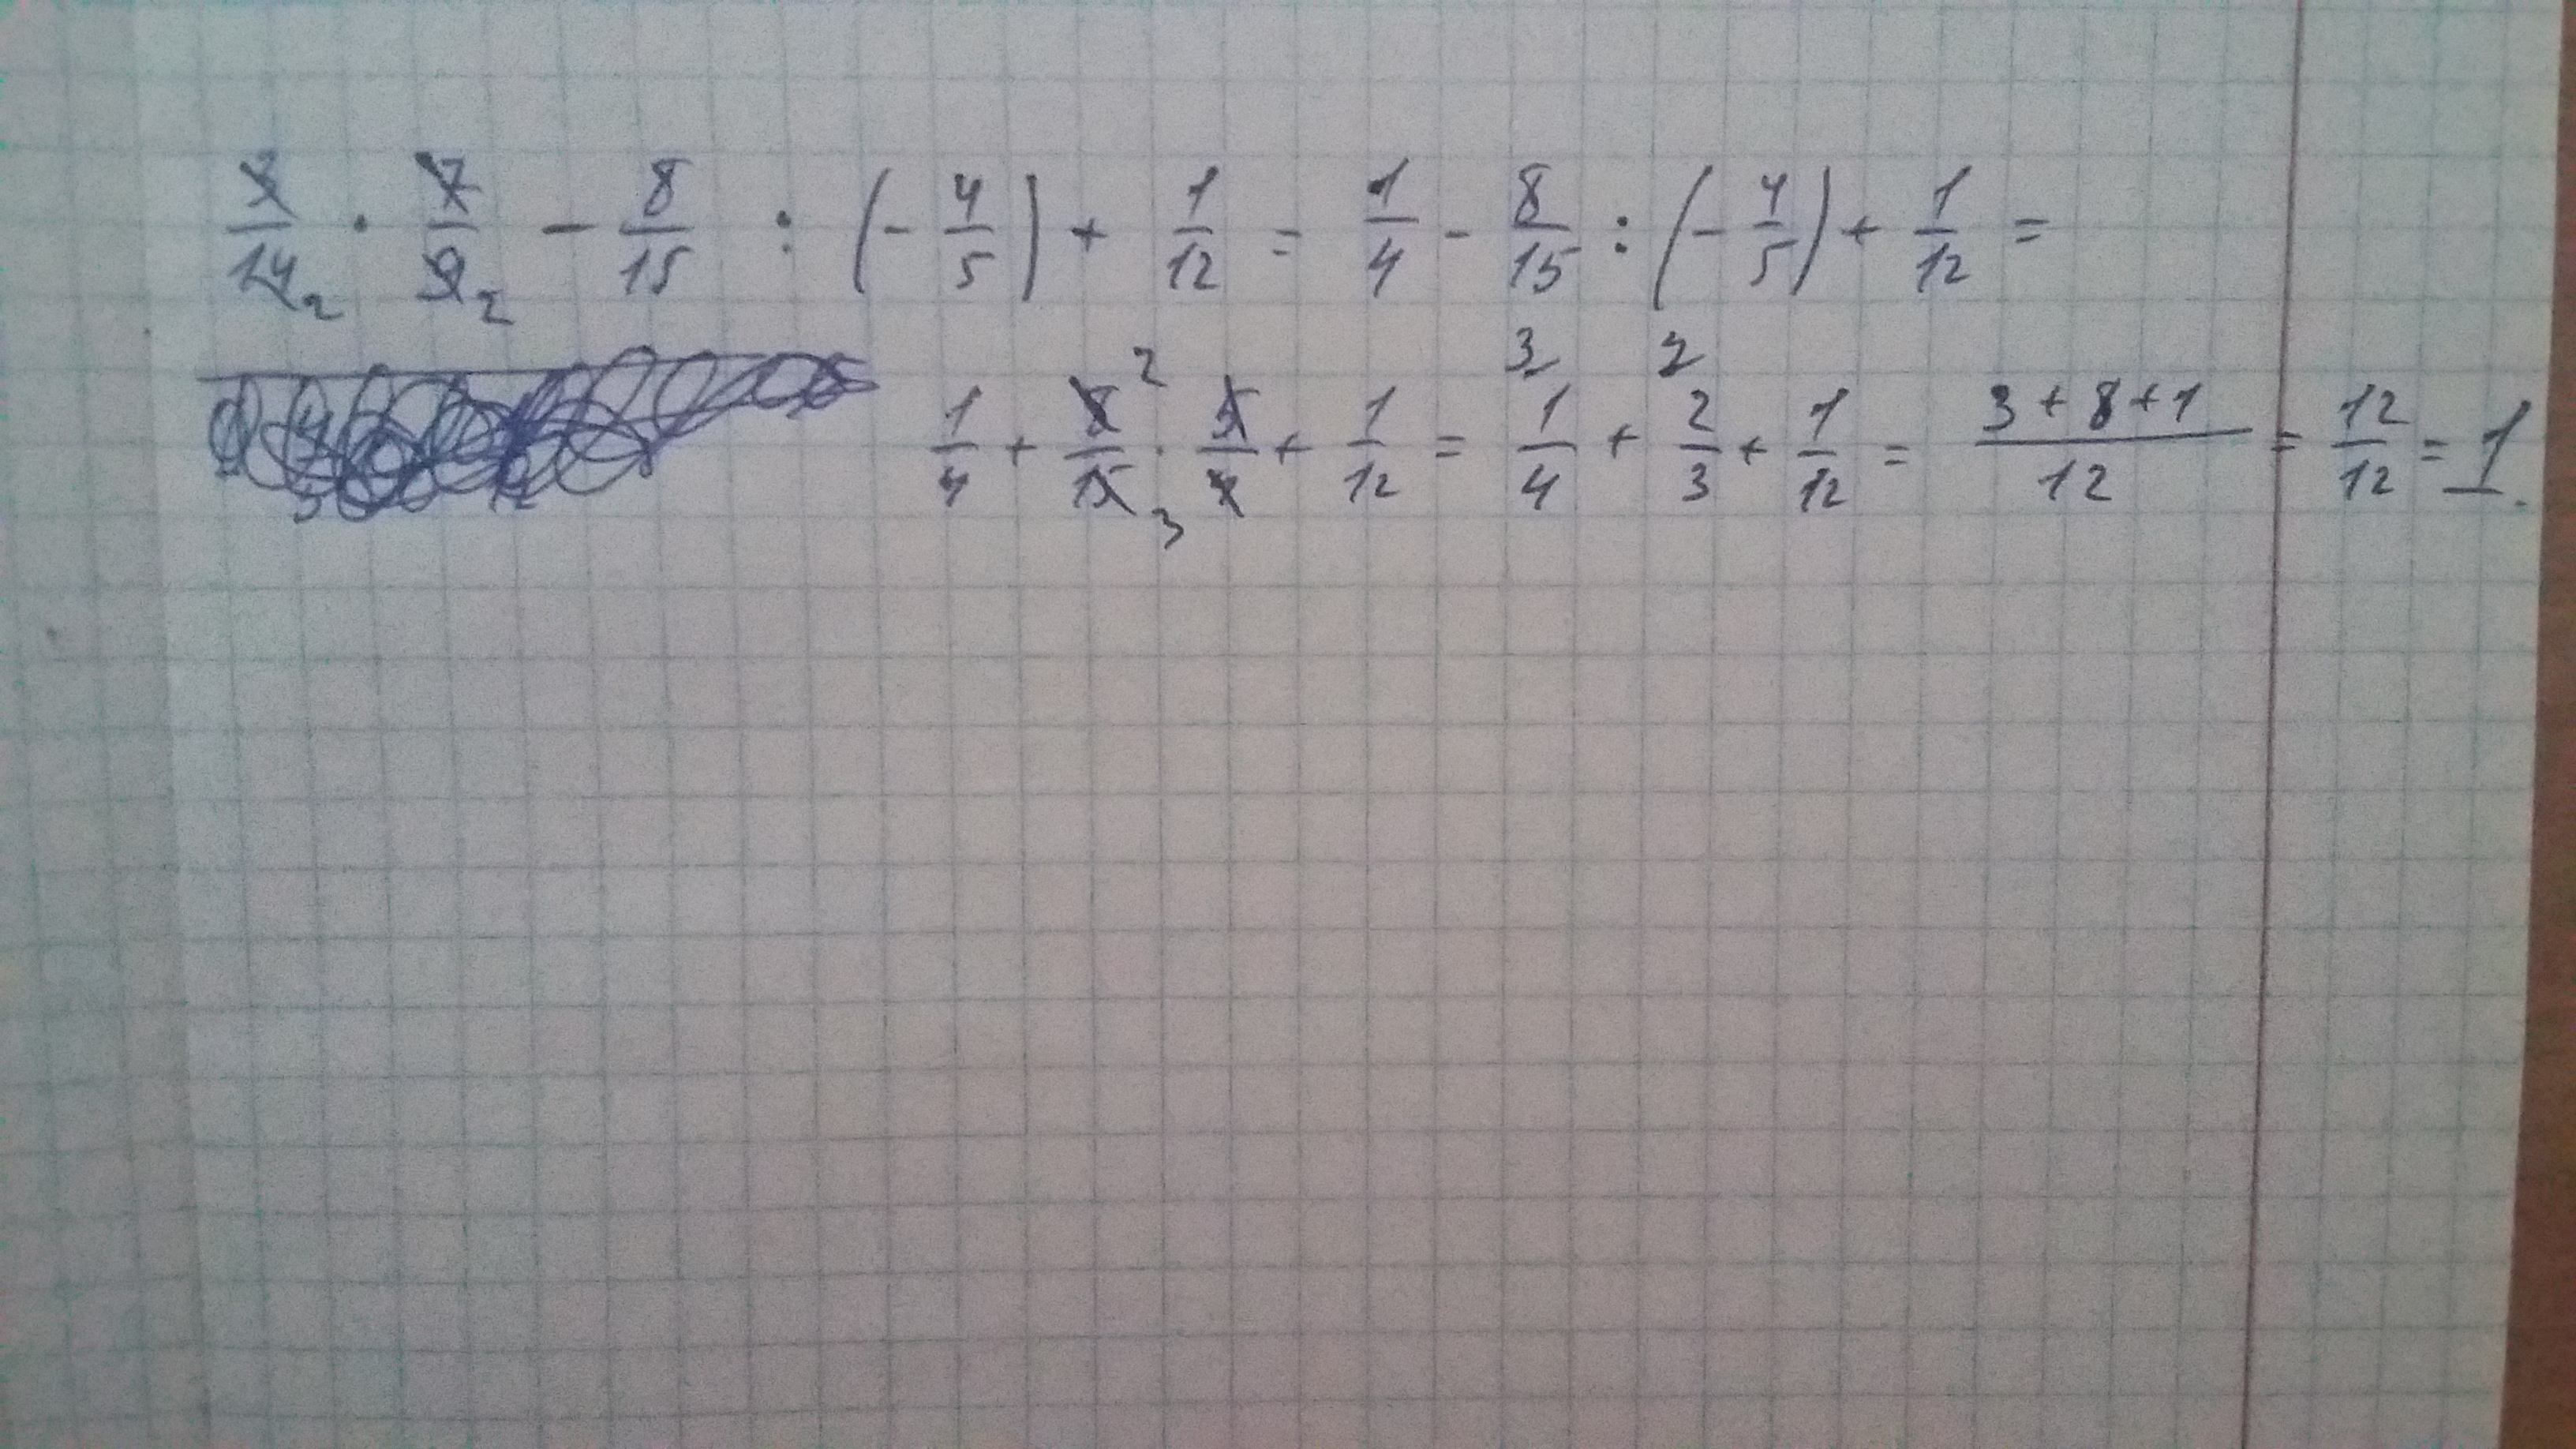 3/14₂ · 7/9₂ - 8/15 : (- 4/5) + 1/12 = 1/4 - 8/15 : (- 4/5) + 1/12 =
1/4 + 8²/15₃ · 5/4 + 1/12 = ³1/4 + ⁴2/3 + 1/12 = 3+8+1/12 = 12/12 = 1.